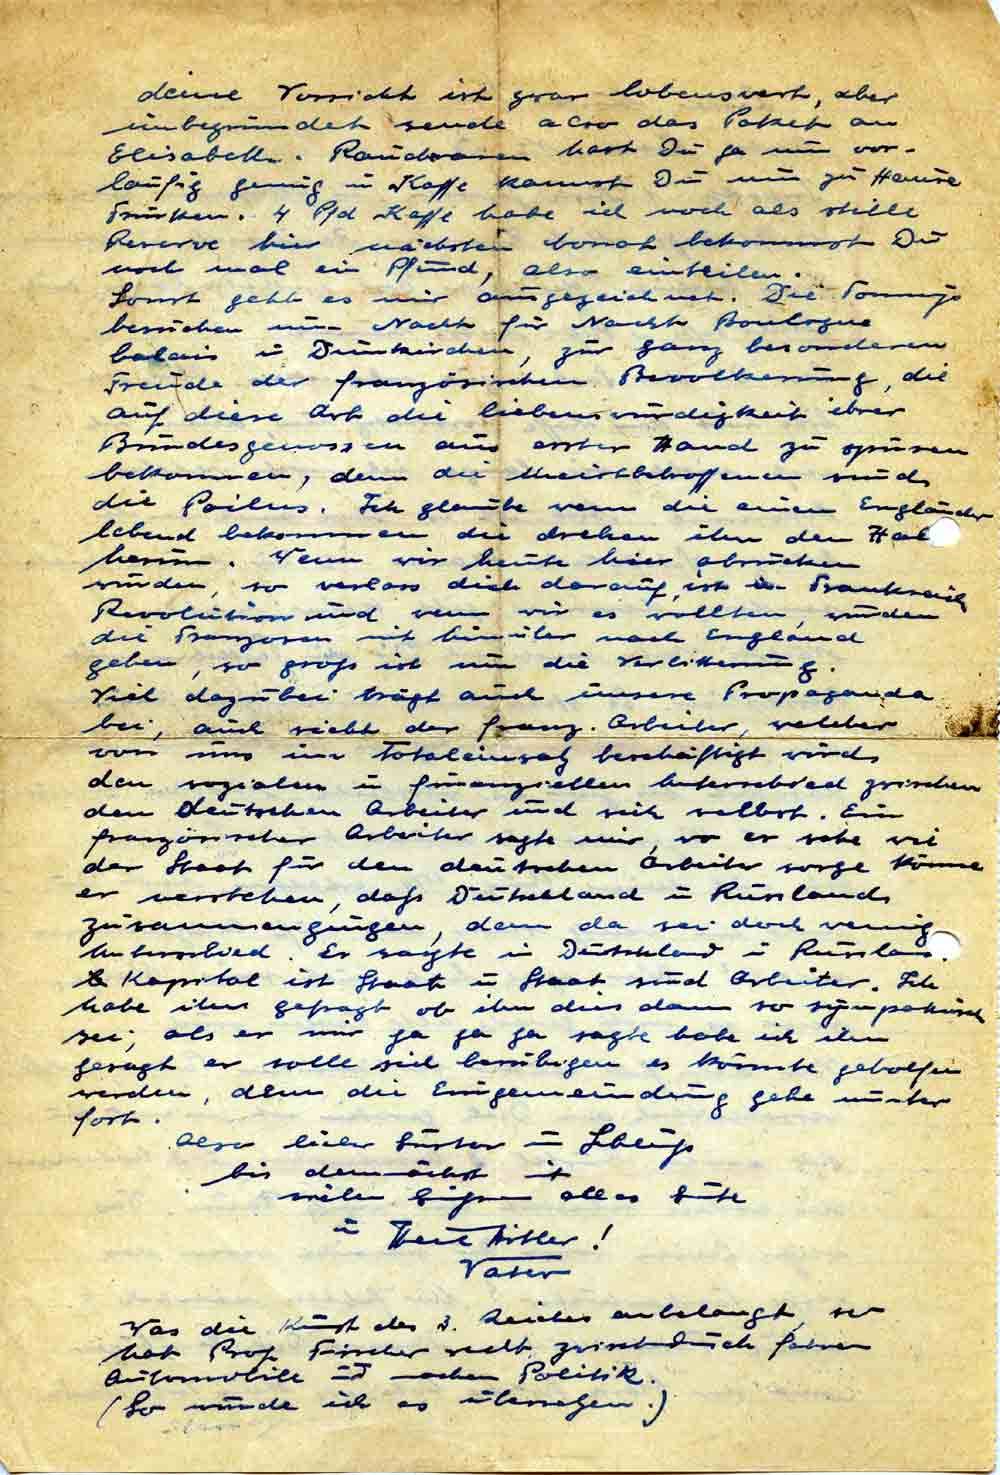 deine Vorsicht ist zwar lobenswert, aber
unbegründet sende also das Paket an
Elisabeth. Rauchwaren hast Du ja nun vor-
läufig genug u Kaffe kannst Du nun zu Hause
trinken. 4 Pfd Kaffe habe ich noch als stille
Reserve hier nächsten Monat bekommst Du
noch mal ein Pfund, also einteilen.
Sonst geht es mir ausgezeichnet. Die Tommys
besuchen nun Nacht für Nacht Boulogne
Calais u Dünkirchen, zur ganz besonderen
Freude der französischen Bevölkerung, die
auf diese Art die liebenswürdigkeit ihrer
Bundesgenossen aus erster Hand zu spüren
bekommen, denn die Meistbetroffenen sind
die Poilus. Ich glaube wenn die einen Engländer
lebend bekommen die drehen ihm den Hal
herum. Wenn wir heute hier abrücken
würden, so verlass dich darauf, ist in Frankreich
Revolution und wenn wir es wollten, würden
die Franzosen mit hinüber nach England
gehen, so groß ist nun die Verbitterung.
Viel dazu trägt auch unsere Propaganda
bei, auch sieht der franz. Arbeiter, welcher
von uns im Totaleinsatz beschäftigt wird
den sozialen u finanziellen Unterschied zwischen
den Deutschen Arbeiter und sich selbst. Ein
französischer Arbeiter sagte mir, so er sehe wie
der Staat für den deutschen Arbeiter sorge könne
er verstehen, daß Deutschland u Russland
zusammengingen, denn da sei doch wenig
Unterschied. Er sagte in Deutschland u Russlan
Kapital ist Staat u Staat sind Arbeiter. Ich
habe ihn gefragt ob ihm dies dann so sympatisch
sei, als er mir ja ja ja sagte habe ich ihm
gesagt er solle sich beruhigen es könnte geholfen
werden, denn die Eingemeindung gehe munter
fort.
Also lieber Gustav u
bis demnächst mit
vielen Grüßen alles Gute
u Heil Hitler!
Vater
Was die Kunst des 3. Reiches anbelangt, so
hat Prof. Fischer recht
Automobile und machen Politik.
(So würde ich es übersetzen.)